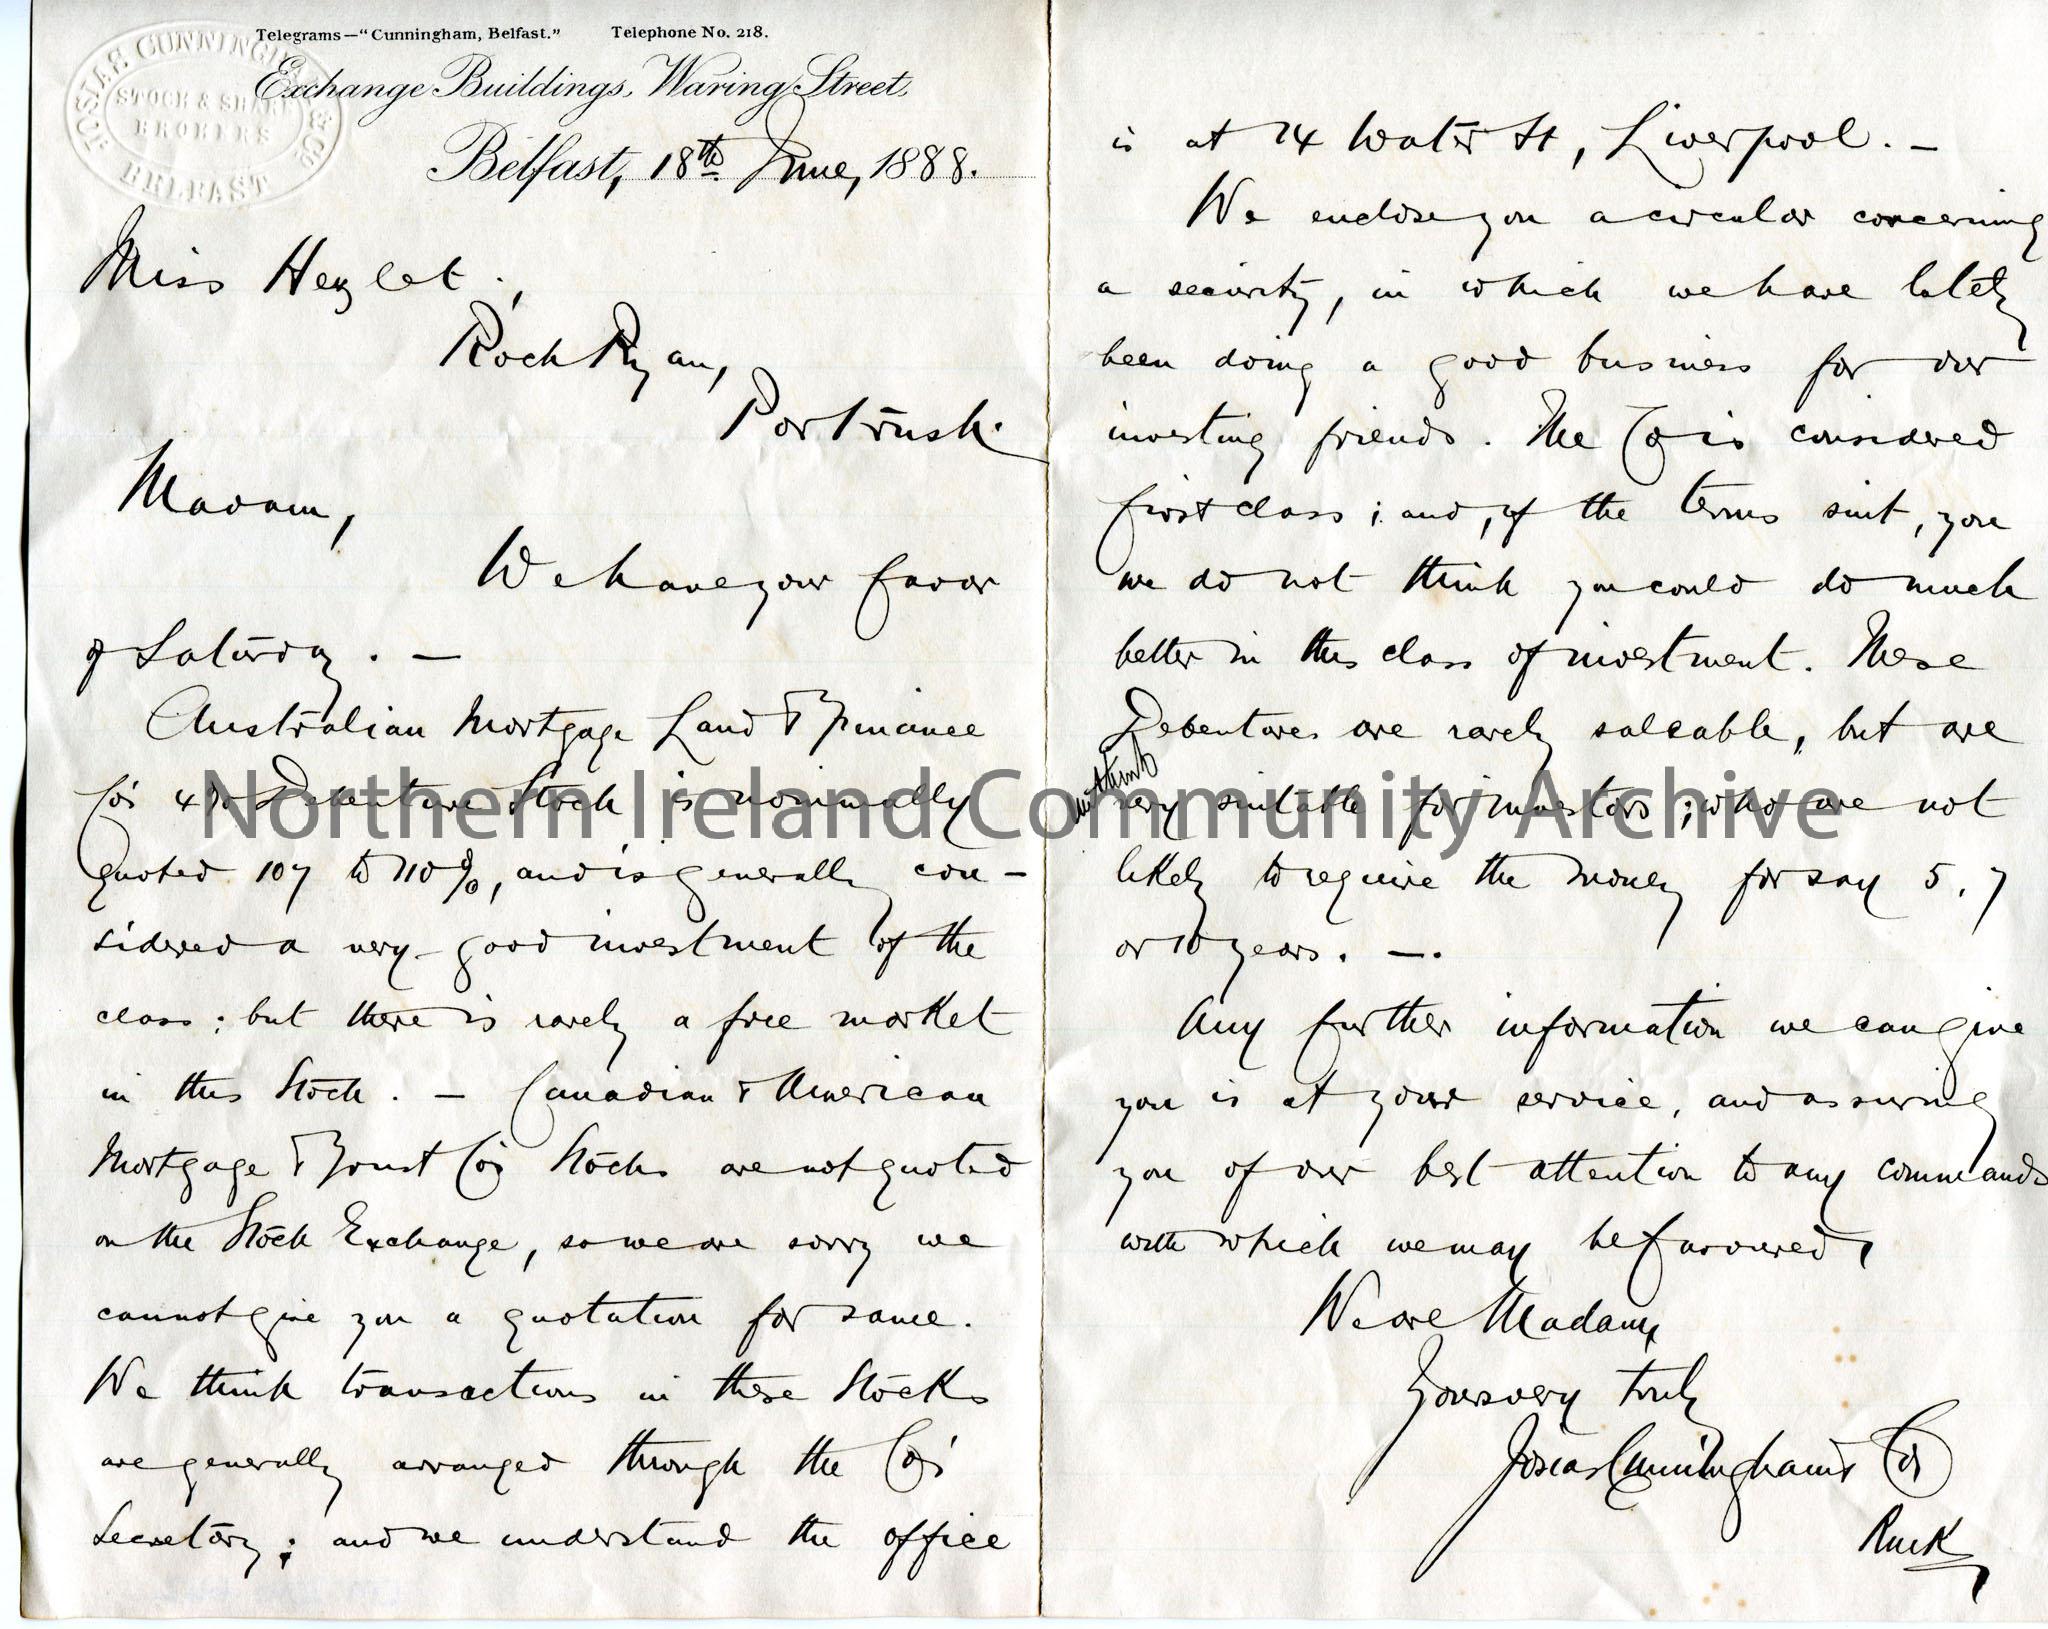 Telegrams—"Cunningham, Belfast." Telephone No. 218.
JOSIAS CUNNINGHAM & Co
STOCK & SHARE
BROKERS
BELFAST
Exchange Buildings, Waring Street,
Belfast, 18th June, 1888.
Miss Hezlet,
Rock Ryan,
Portrush.
Madam,
We have your favor
of Saturday. —
Australian Mortgage Land & Finance
Co's 4% Debenture Stock is nominally
quoted 107 to 110%, and is generally con-
sidered a very good investment of the
class; but there is rarely a free market
in this Stock. — Canadian & American
Mortgage & Trust Co's Stocks are not quoted
on the Stock Exchange, so we are sorry we
cannot give you a quotation for same.
We think transactions in these Stocks
are generally arranged through the Co's
Secretary; and we understand the office
is at 24 Water St, Liverpool. —
We enclose you a circular concerning
a security, in which we have lately
been doing a good business for our
investing friends. The Co is considered
first class; and, if the terms suit, you
we do not think you could do much
better in this class of investment. These
Debentures are rarely saleable, but are
very suitable for investors; who are not
likely to require the money for say 5, 7
or 10 years. —.
Any further information we can give
you is at your service, and assuring
you of our best attention to any commands
with which we may be favoured,
We are Madam,
Yours very truly
Josias Cunningham & Co
Northern Ireland Community Archive